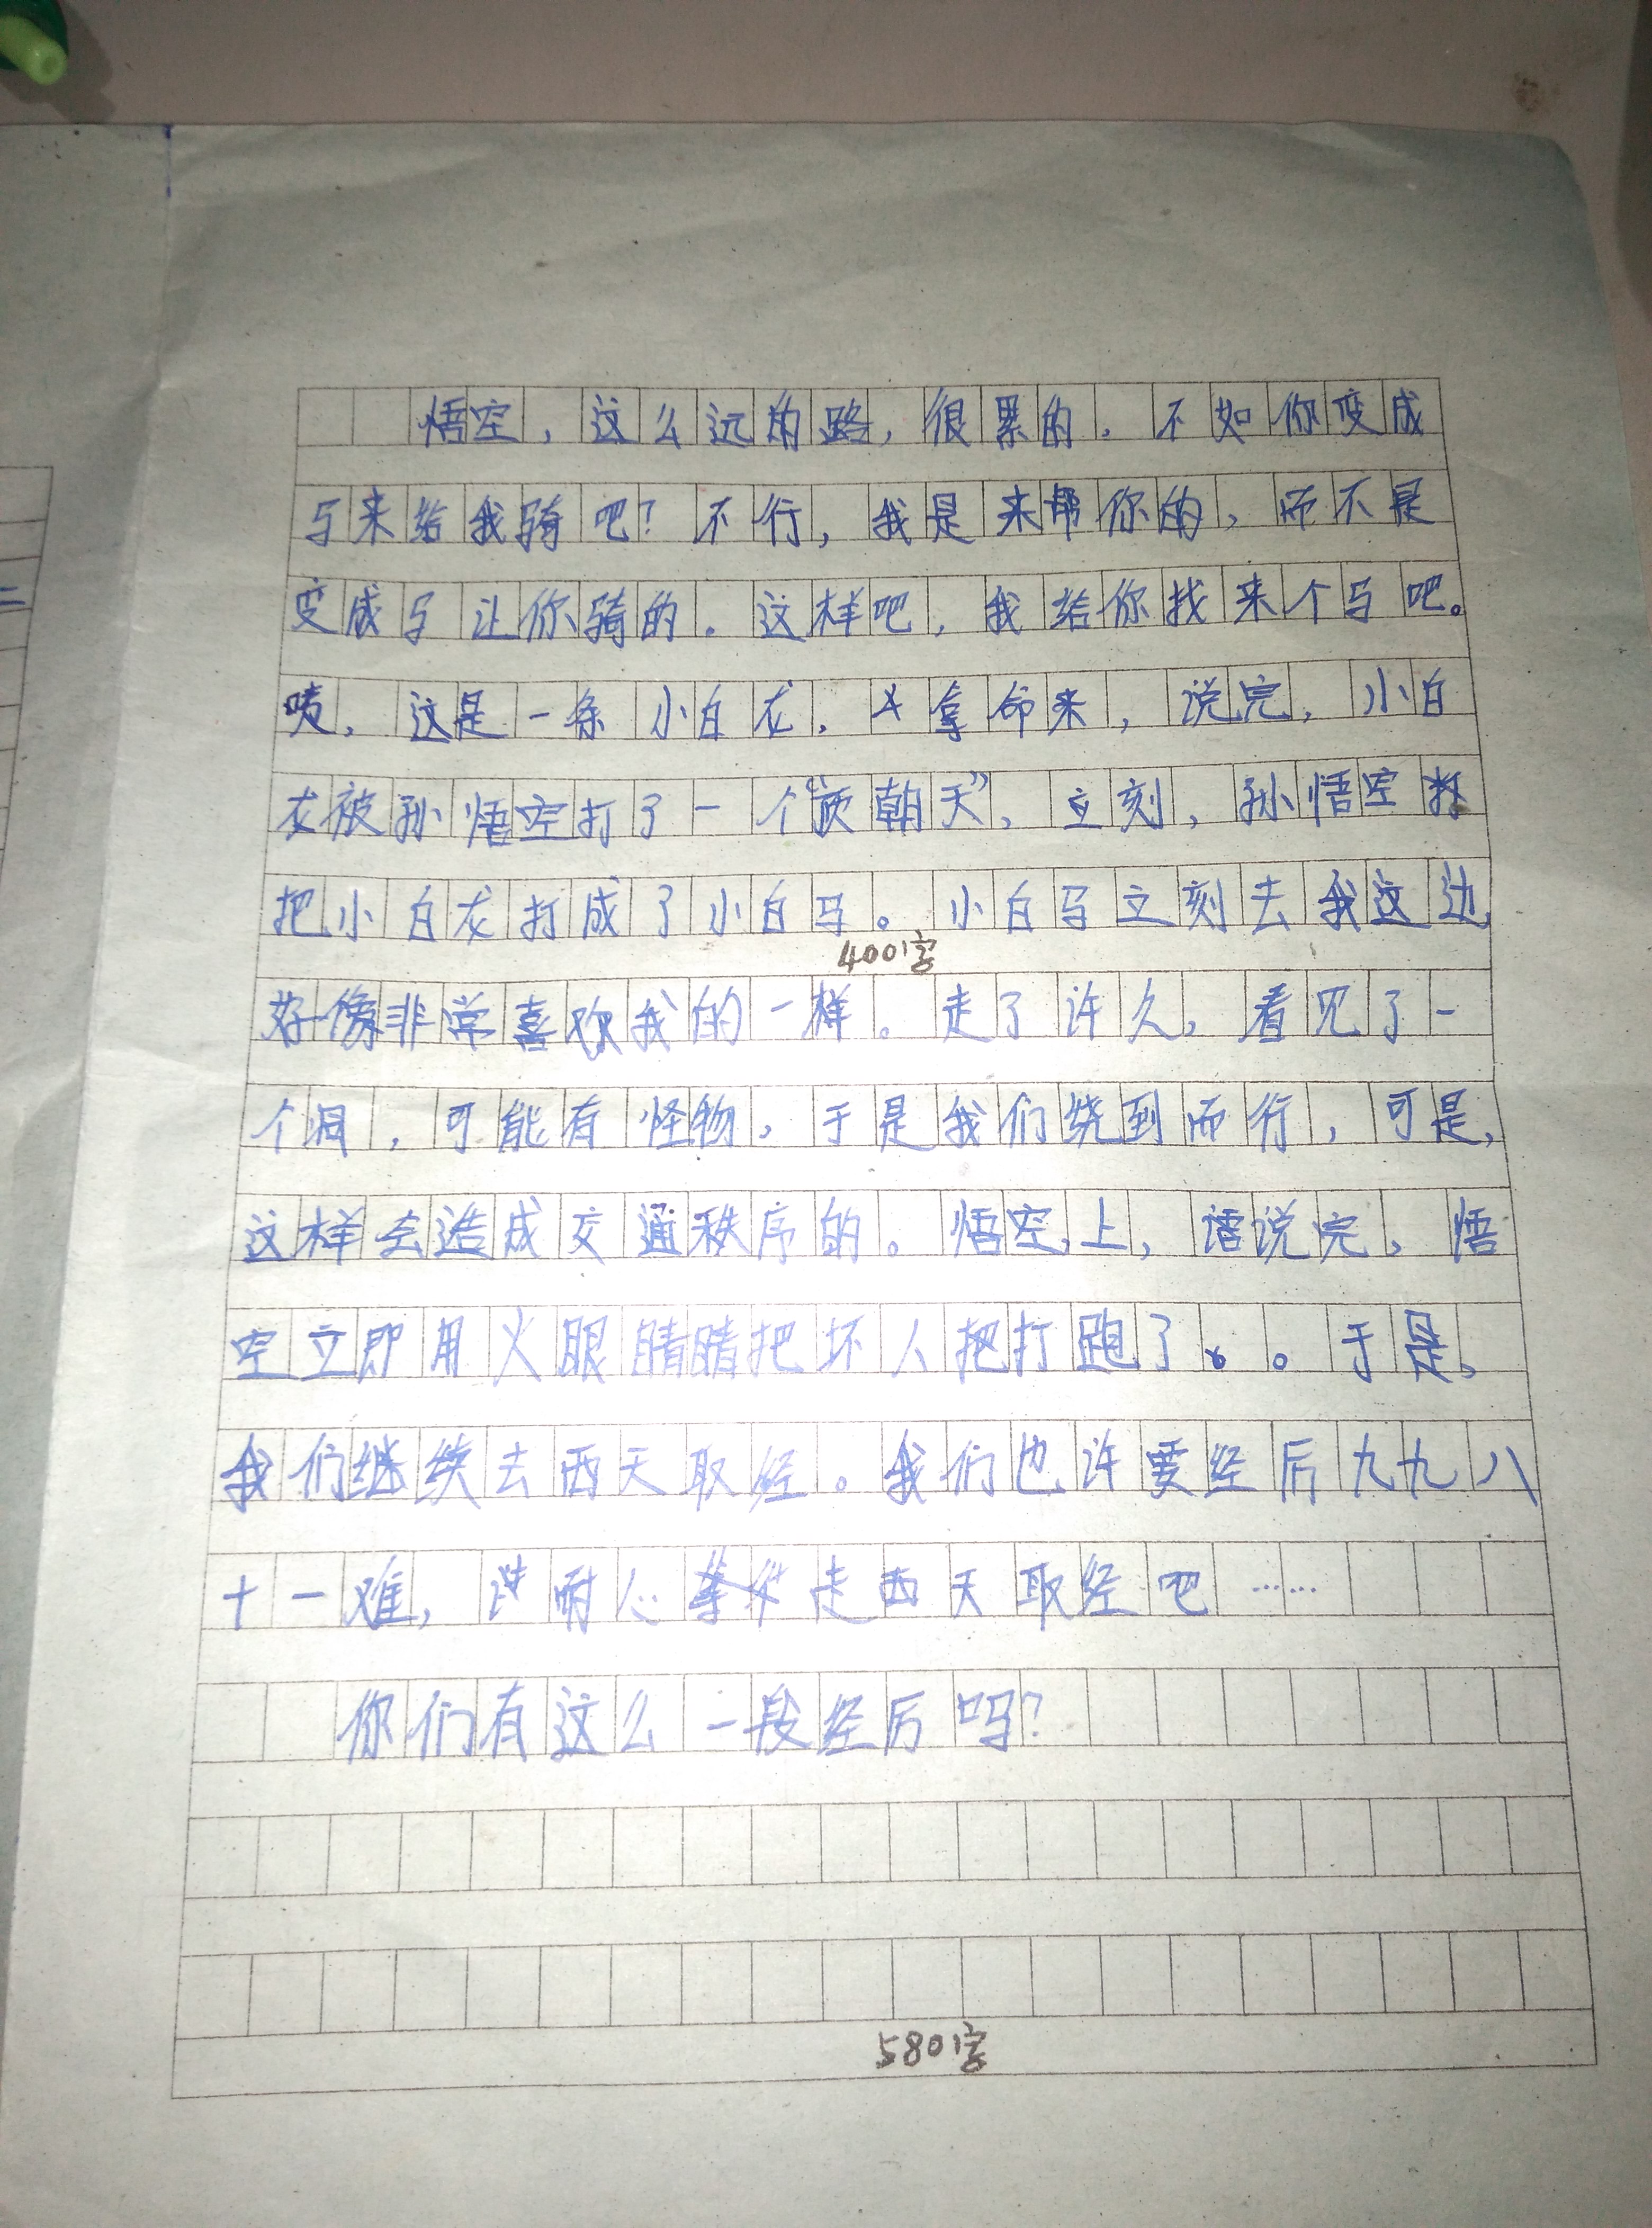 悟空，这么远的路，很累的，不如你变成
马来给我骑吧？不行，我是来帮你的，而不是
变成马让你骑的。这样吧，我给你找来个马吧。
这是一条小白龙，拿命来，说完，小白
龙被孙悟空打了一个“顶朝天”，立刻，孙悟空
把小白龙打成了小白马。小白马立刻去我这边，
400字
好像非常喜欢我的一样。走了许久，看见了一
个洞，可能有怪物，于是我们绕到而行，可是，
这样会造成交通秩序的。悟空，上，话说完，悟
空立即用火眼睛睛把坏人把打跑了。于是，
我们继续去西天取经。我们也许要经历九九八
十一难，耐心走西天取经吧……
你们有这么一段经历吗？
580字